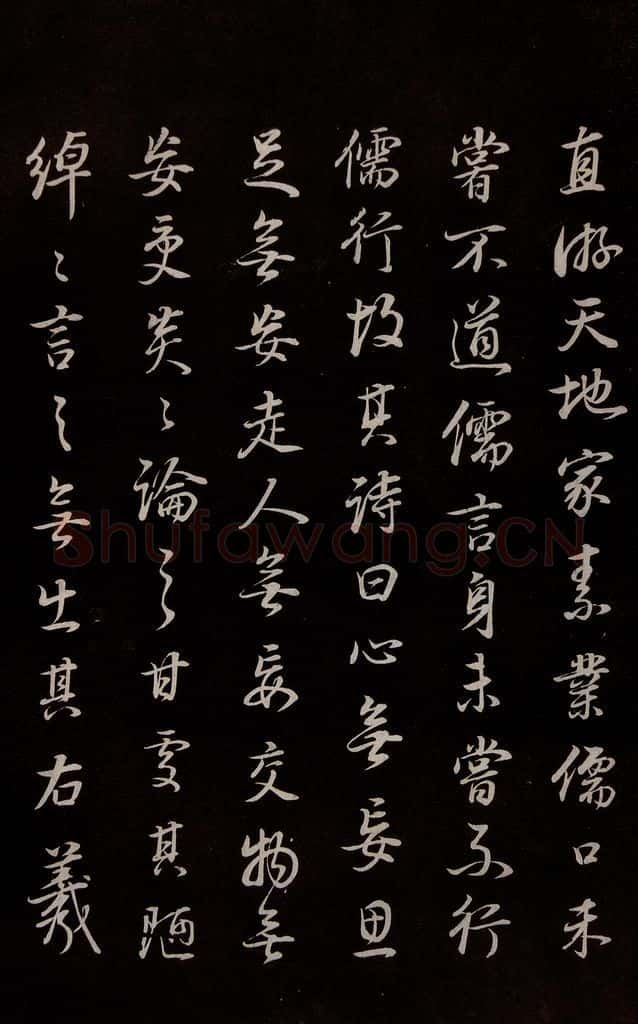 直游天地家素業儒口未
嘗不道儒言身未嘗不行
儒行故其詩曰心無妄思
足無妄走人無妄交物無
妄受炎〻論之甘處其陋
綽〻言之無出其右羲
Shufawang.CN